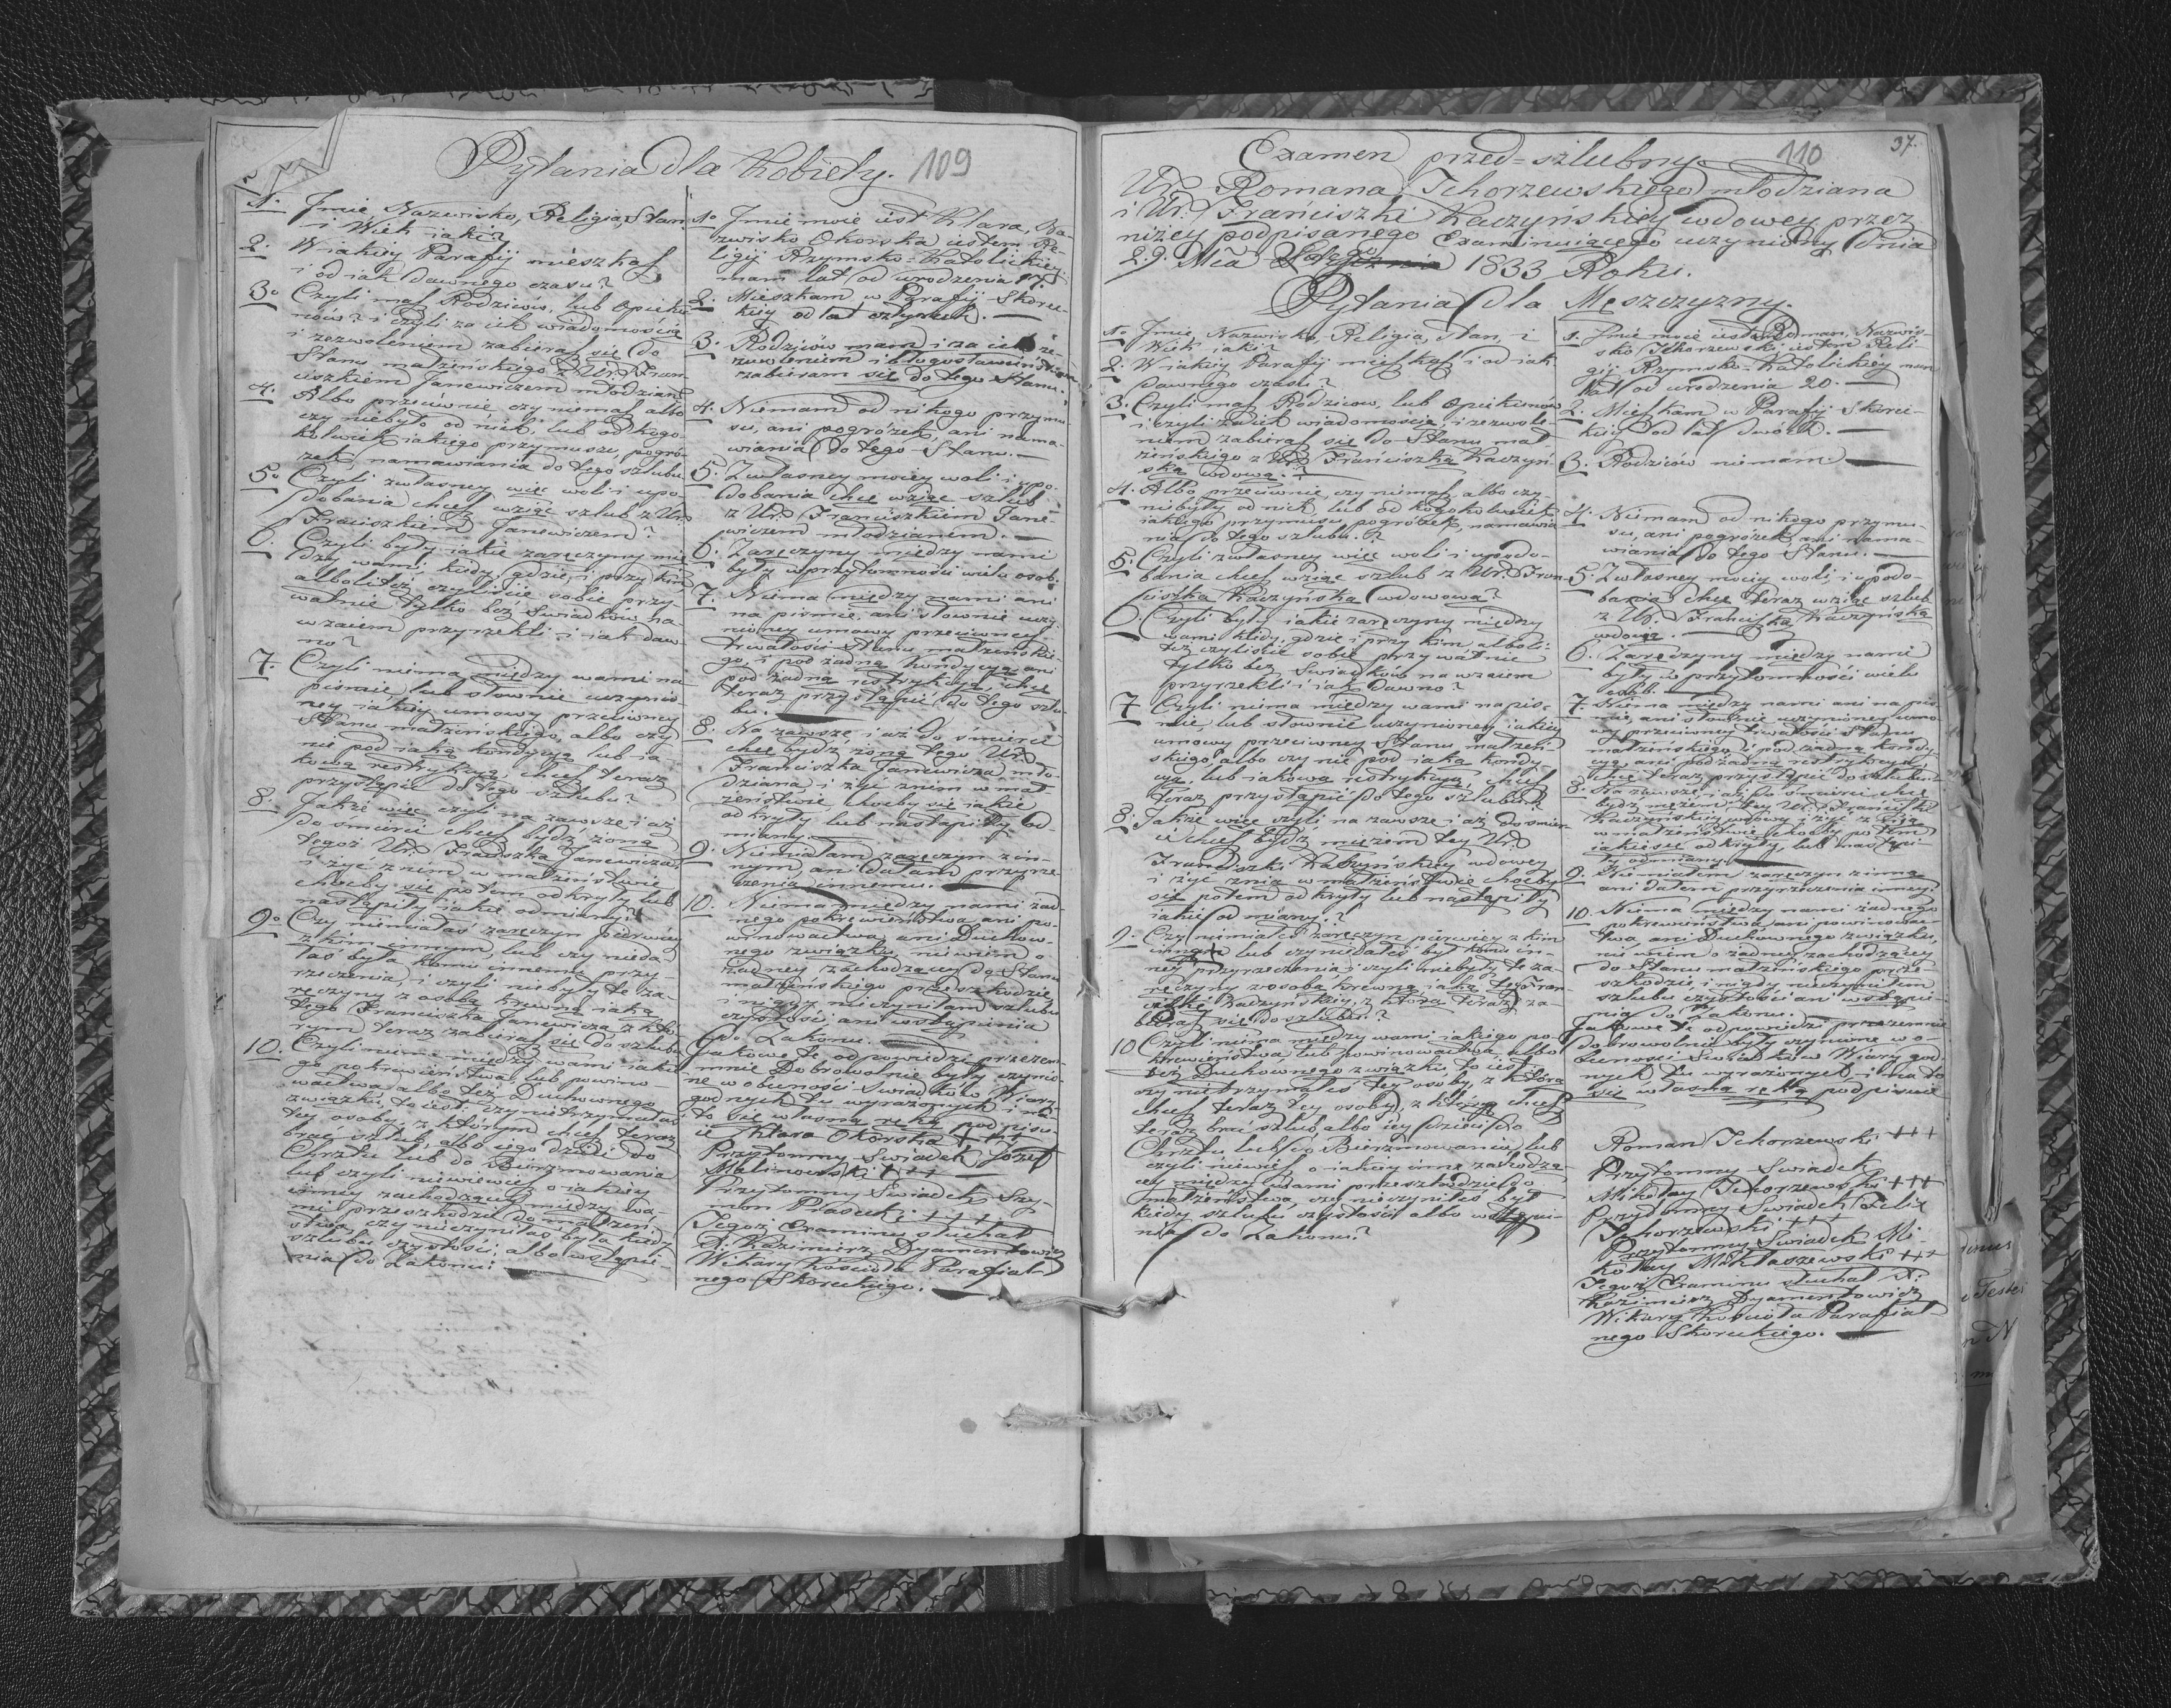 Pytania dla Kobiety. 109
1. Jmie Nazwisko, Religia, Stan
i Wiek iaki?
2. W iakiey Parafij mieszkasz
i od iak dawnego czasu?
3. Czyli masz Rodziców, lub Opieku-
nów? i czyli za ich wiadomością
i zezwoleniem zabierasz się do
Stanu małżeńskiego z Ur. Fran-
ciszkiem Janewiczem młodzianem
4. Albo przeciwnie, czy niemasz albo
czy niebyło od nich, lub od kogo-
kolwiek iakiego przymusu, pogró-
żek, namawiania do tego szlubu
5. Czyli zwłasney więc woli i upo-
dobania chcesz wziąć szlub z Ur.
Franciszkiem Janewiczem?
6. Czyli były iakie zaręczyny mię-
dzy wami, kiedy, gdzie, i przy kim
albo też czyliście sobie pry-
watnie tylko bez Swiadków na-
wzaiem przyrzekli i iak daw-
no?
7. Czyli niema między wami na
piśmie, lub słownie uczynio-
ney iakiey umowy przeciwney
Stanu małżeńskiego, albo czy
nie pod iaką kondycyą lub ia-
kową restrykcyą, chcesz teraz
przystąpić do tego szlubu?
8. Jakże więc czyli na zawsze i aż
do śmierci chcesz bydź żoną
tegoż Ur. Franciszka Janewicza
i żyć z nim w małżeństwie
choćby się potem odkryły lub
nastąpiły iakie odmiany?
9. Czy niemiałaś zaręczyn pierwiey
z kim innym, lub czy nieda-
łaś była komu innemu przy-
rzeczenia, i czyli niebyły te za-
ręczyny z osobą krewną iaką
tego Franciszka Janewicza z któ-
rym teraz zabierasz się do szlubu
10. Czyli niema między wami iakie-
go pokrewieństwa, lub powino-
wactwa albo też Duchownego
związku, to iest, czy nietrzymałaś
tey osoby, z którym chcesz teraz
brać szlub, albo iego dzieci do
Chrztu lub do Bierzmowania
lub czyli niewiesz o iakiey
inney zachodzącey między wa-
mi przeszkodzie do małżeń-
stwa, czy nieczyniłaś była kiedy
szlubu czystości, albo wstąpie-
nia do Zakonu?
1. Jmie moie iest Klara, Na-
zwisko Okorska iestem Re-
ligij Rzymsko-Katolickiey
mam lat od urodzenia 17.
2. Mieszkam w Parafij Skorec-
kiey od lat czterech.
3. Rodziców mam i za ich ze-
zwoleniem i błogosławieństwem
zabieram się do tego Stanu.
4. Niemam od nikogo przymu-
su, ani pogróżek, ani nama-
wiania do tego Stanu.
5. Zwłasney moiey woli i upo-
dobania chcę wziąć szlub
z Ur. Franciszkiem Jane-
wiczem młodzianem.
6. Zaręczyny między nami
były w przytomności wielu osob.
7. Niema między nami ani
na piśmie, ani słownie uczy-
nioney umowy przeciwney
trwałości Stanu małżeńskie-
go, i pod żadną kondycyą, ani
pod żadną restrykcyą chcę
teraz przystąpić do tego szlu-
bu.
8. Na zawsze i aż do śmierci
chcę bydź żoną tego Ur.
Franciszka Janewicza mło-
dziana, i żyć z nim w mał-
żeństwie, choćby się iakie
odkryły lub nastąpiły od-
miany.
9. Niemiałam zaręczyn z in-
nym, ani dałam przyrze-
czenia innemu.
10. Niema między nami żad-
nego pokrewieństwa ani po-
winowactwa, ani Duchow-
nego związku, niewiem o
żadney zachodzącey do Stanu
małżeńskiego przeszkodzie,
i nigdy nieczyniłam szlubu
czystości, ani wstąpienia
do Zakonu.
Jakowe te odpowiedzi przezem-
mnie dobrowolnie były uczynio-
ne w obecności Swiadków Wiary
godnych tu wyrażonych i na
to się własną ręką podpisu-
ię Klara Okorska +++
Przytomny Swiadek Jozef
Malinowski +++
Przytomny Swiadek Szy-
mon Piasecki +++
Tegoż Examinu słuchał
X. Kazimierz Dyamentowicz
Wikary Kościoła Parafial-
nego Skoreckiego.
Examen przed-szlubny 110 37.
Ur. Romana Tchorzewskiego młodziana
i Ur. Franciszki Kaczyńskiey wdowey przez
niżey podpisanego Examinuiącego uczyniony Dnia
29. Mca 1833 Roku.
Pytania dla Męszczyzny.
1. Jmie, Nazwisko, Religia, Stan, i
Wiek iaki?
2. W iakiey Parafij mieszkasz i od iak
dawnego czasu?
3. Czyli masz Rodziców, lub Opiekunów
i czyli za ich wiadomością, i zezwole-
niem zabierasz się do Stanu mał-
żeńskiego z Ur. Franciszką Kaczyń-
ską wdową?
4. Albo przeciwnie, czy niemasz, albo czy
niebyły od nich, lub od kogokolwiek
iakiego przymusu, pogróżek, namawia-
nia do tego szlubu?
5. Czyli zwłasney więc woli i upodo-
bania chcesz wziąć szlub z Ur. Fran-
ciszką Kaczyńską wdowową?
6. Czyli były iakie zaręczyny między
wami kiedy, gdzie i przy kim, alboli-
też czyliście sobie prywatnie
tylko bez Swiadków nawzaiem
przyrzekli i iak dawno?
7. Czyli niema między wami na piś-
mie, lub słownie uczynioney iakiey
umowy przeciwney Stanu małżeń-
skiego, albo czy nie pod iaką kondy-
cyą, lub iakową restrykcyą, chcesz
teraz przystąpić do tego szlubu?
8. Jakże więc czyli, na zawsze i aż do śmier-
ci chcesz bydź mężem tey Ur.
Franciszki Kaczyńskiey wdowey
i żyć z nią w małżeństwie choćby
się potem odkryły lub nastąpiły
iakie odmiany?
9. Czy niemiałeś zaręczyn pierwiey z kim
lub czy niedałeś był komu in-
ney przyrzeczenia i czyli niebyły te za-
ręczyny z osobą krewną iaką tey Fran-
ciszki Kaczyńskiey, z którą teraz za-
bierasz się do szlubu?
10. Czyli niema między wami iakiego po-
krewieństwa lub powinowactwa, albo
też Duchownego związku, to iest,
czy nietrzymałeś tey osoby, z którą
chcesz teraz tey osoby, z którą chcesz
teraz brać szlub, albo iey dzieci do
Chrztu lub do Bierzmowania lub
czyli niewiesz o iakiey inney zachodzą-
cey między wami przeszkodzie do
małżeństwa, czy nieczyniłeś był
kiedy szlubu czystości albo wstąpie-
nia do Zakonu?
1. Jmie moie iest Roman, Nazwis-
ko Tchorzewski iestem Reli-
gij Rzymsko-Katolickiey mam
lat od urodzenia 20.
2. Mieszkam w Parafij Skorec-
kiey od lat dwóch.
3. Rodziców niemam.
4. Niemam od nikogo przymu-
su, ani pogróżek, ani nama-
wiania do tego Stanu.
5. Zwłasney moiey woli, i upodo-
bania chcę teraz wziąć szlub
z Ur. Franciszką Kaczyńską
wdową.
6. Zaręczyny między nami
były w przytomności wielu
osob.
7. Niema między nami ani na piś-
mie, ani słownie uczynioney umo-
wy przeciwney trwałości Stanu
małżeńskiego, i pod żadną kondy-
cyą, ani pod żadną restrykcyą,
chcę teraz przystąpić do szlubu.
8. Na zawsze i aż do śmierci chcę
bydź mężem tey Ur. Franciszki
Kaczyńskiey wdowy i żyć z nią
w małżeństwie choćby potem
iakie się odkryły, lub nastąpi-
ły odmiany.
9. Niemiałem zaręczyn z inną
ani dałem przyrzeczenia inney.
10. Niema między nami żadnego
pokrewieństwa, ani powinowac-
twa, ani Duchownego związku,
niewiem o żadney zachodzącey
do Stanu małżeńskiego prze-
szkodzie, i nigdy nieczyniłem
szlubu czystości ani wstąpie-
nia do Zakonu.
Jakowe te odpowiedzi przezemnie
dobrowolnie były uczynione w o-
becności Swiadków Wiary god-
nych tu wyrażonych i na to
się własną ręką podpisuię
Roman Tchorzewski +++
Przytomny Swiadek
Mikołay Tchorzewski +++
Przytomny Swiadek Felix
Tchorzewski +++
Przytomny Swiadek Mi-
kołay Miklaszewski +++
Tegoż Examinu słuchał X.
Kazimierz Dyamentowicz
Wikary Kościoła Parafial-
nego Skoreckiego.